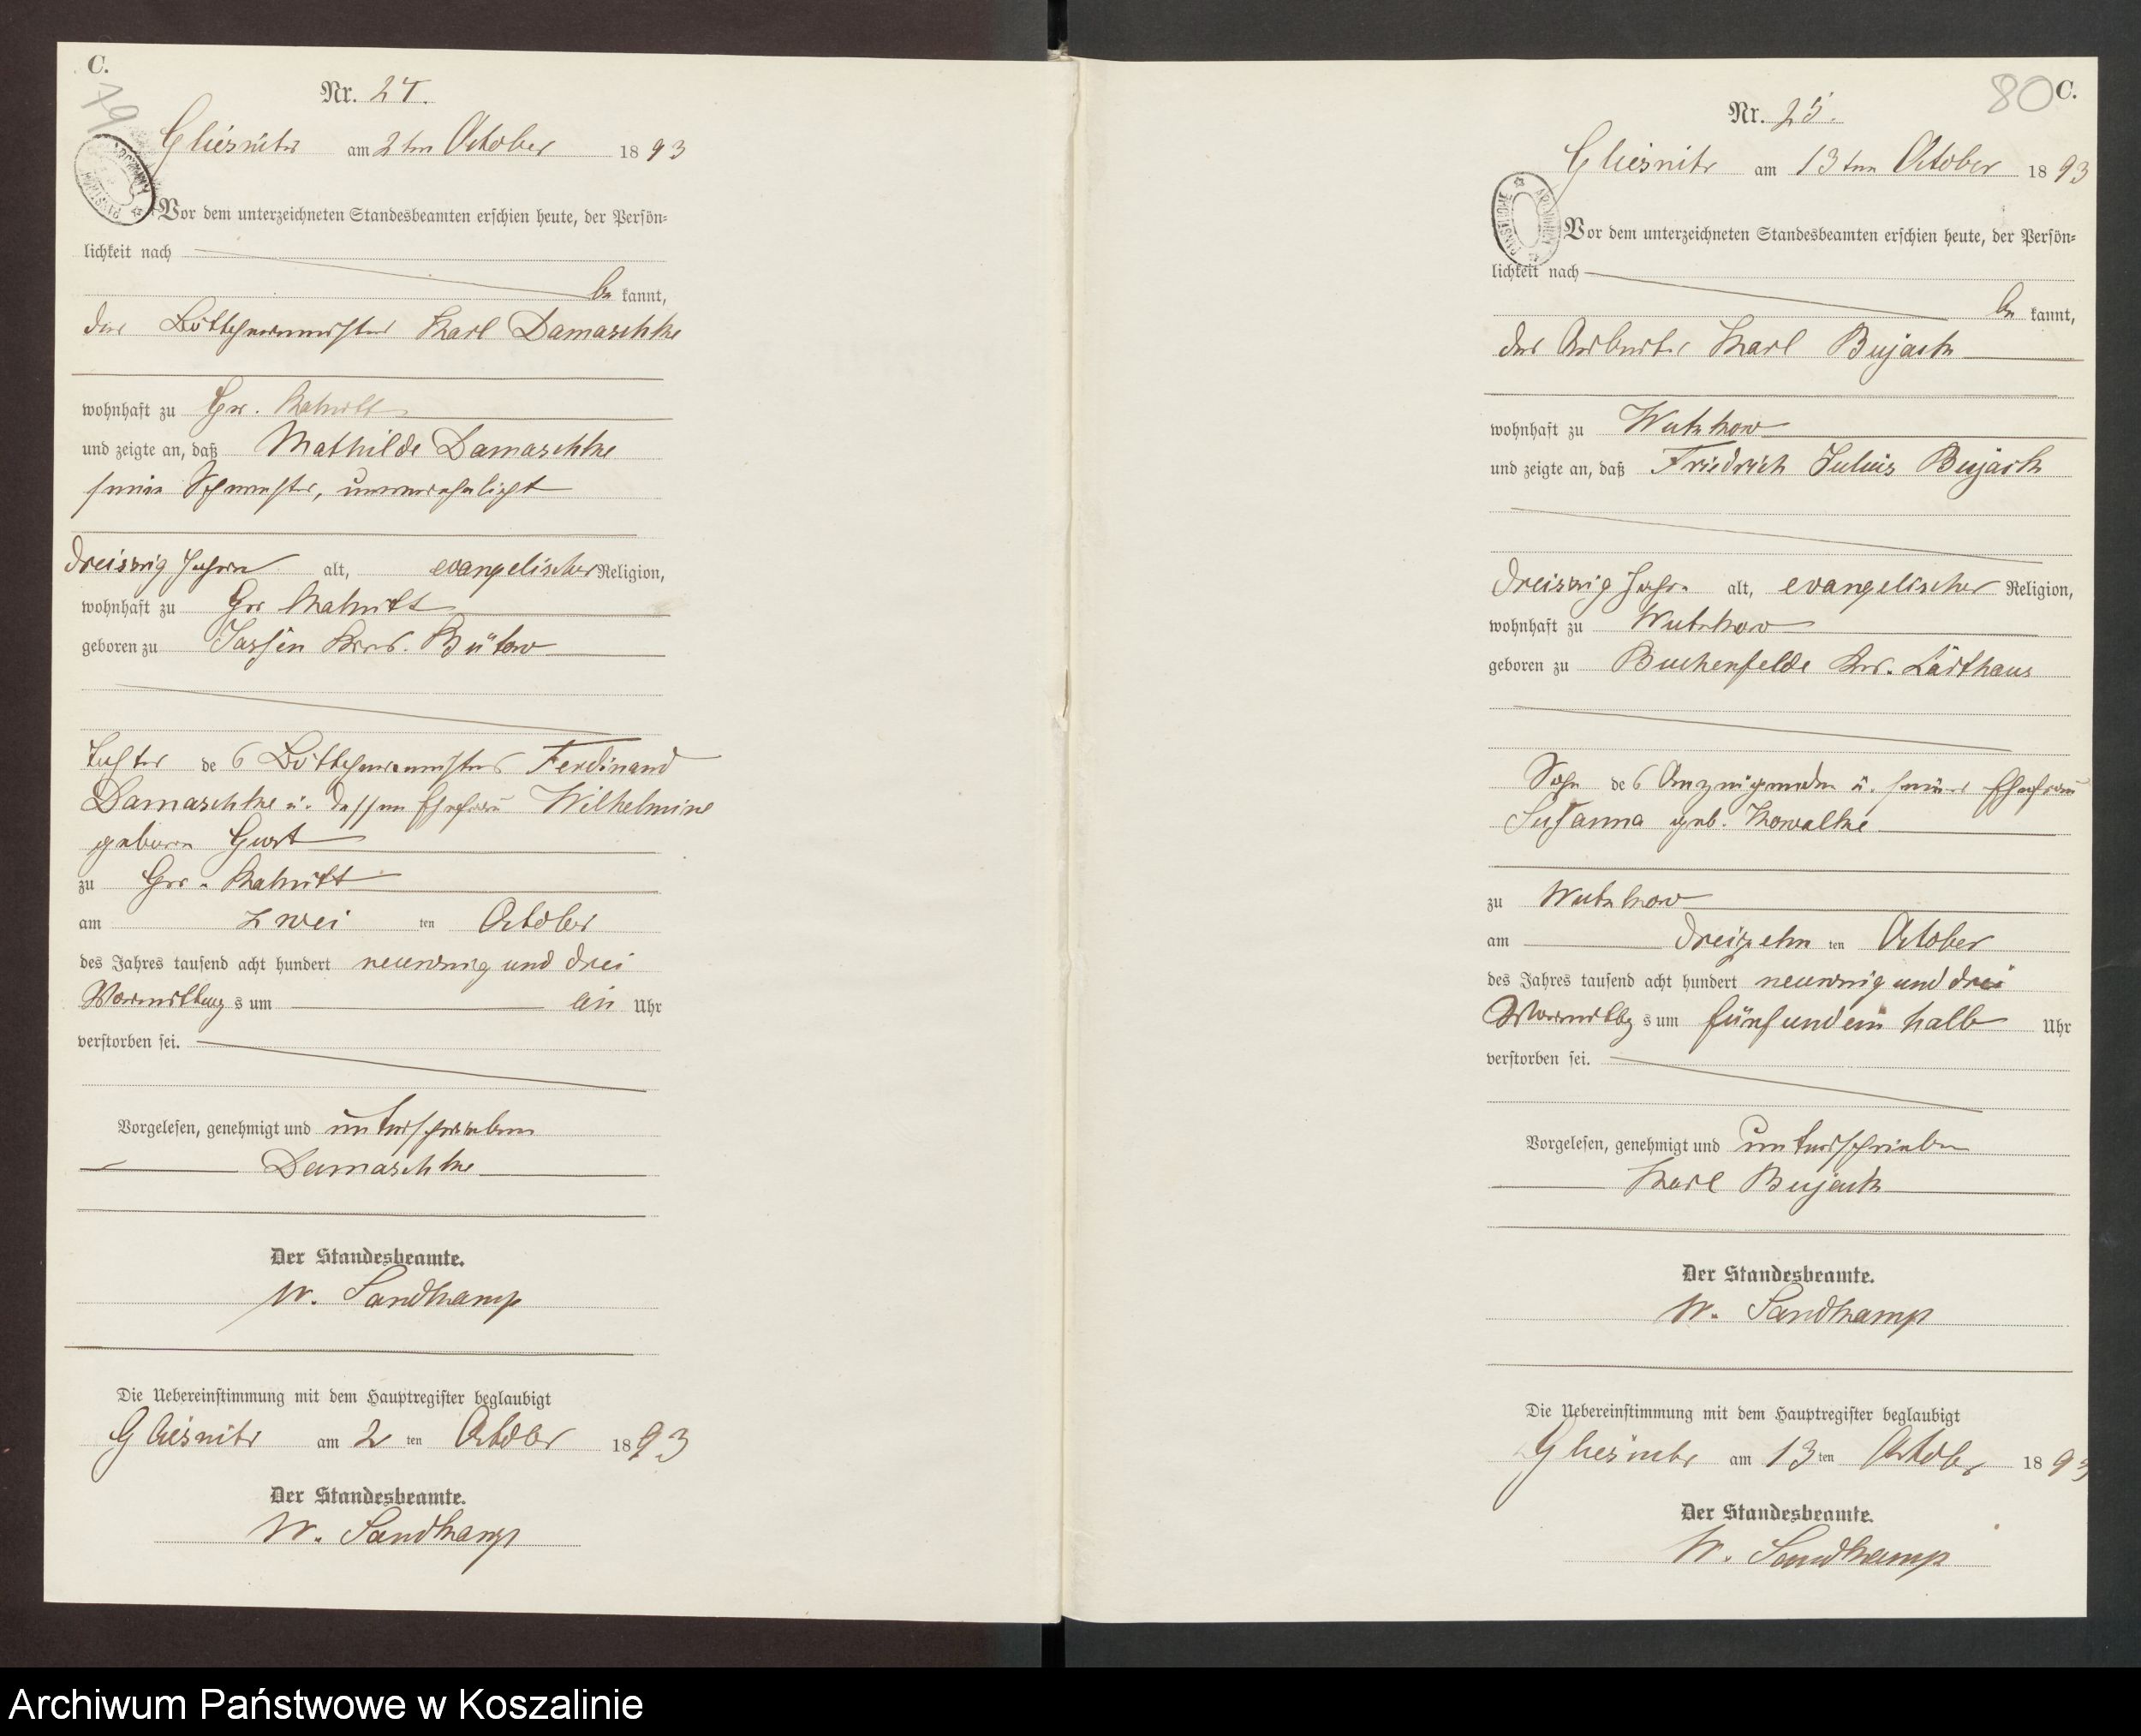 C.
79
Nr. 24.
Gliesnitz am 2ten October 1893
Vor dem unterzeichneten Standesbeamten erschien heute, der Persön-
lichkeit nach
be kannt,
der Böttchermeister Karl Damaschke
wohnhaft zu Gr.
und zeigte an, daß Mathilde Damaschke
seine Schwester, unverehelicht
dreissig Jahre alt, evangelischer Religion,
wohnhaft zu Gr
geboren zu Jassen Krs. Bütow
Tochter des Böttchermeisters Ferdinand
Damaschke u. dessen Ehefrau Wilhelmine
geborne
zu Gr.
am zwei ten October
des Jahres tausend acht hundert neunzig und drei
Vormittag s um ein Uhr
verstorben sei.
Vorgelesen, genehmigt und unterschrieben
Damaschke
Der Standesbeamte.
W. Sandkamp
Die Uebereinstimmung mit dem Hauptregister beglaubigt
Gliesnitz am 2 ten October 1893
Der Standesbeamte.
W. Sandkamp
80 C.
Nr. 25.
Gliesnitz am 13ten October 1893
Vor dem unterzeichneten Standesbeamten erschien heute, der Persön-
lichkeit nach
be kannt,
der Arbeiter Karl Bujack
wohnhaft zu Wutzkow
und zeigte an, daß Friedrich Julius Bujack
dreissig Jahre alt, evangelischer Religion,
wohnhaft zu Wutzkow
geboren zu Buchenfelde Krs.
Sohn des Anzeigenden u. seiner Ehefrau
Susanna geb. Kowalke
zu Wutzkow
am dreizehn ten October
des Jahres tausend acht hundert neunzig und drei
Vormittag s um fünf und ein halb Uhr
verstorben sei.
Vorgelesen, genehmigt und unterschrieben
Karl Bujack
Der Standesbeamte.
W. Sandkamp
Die Uebereinstimmung mit dem Hauptregister beglaubigt
Gliesnitz am 13 ten October 1893
Der Standesbeamte.
W. Sandkamp
Archiwum Państwowe w Koszalinie